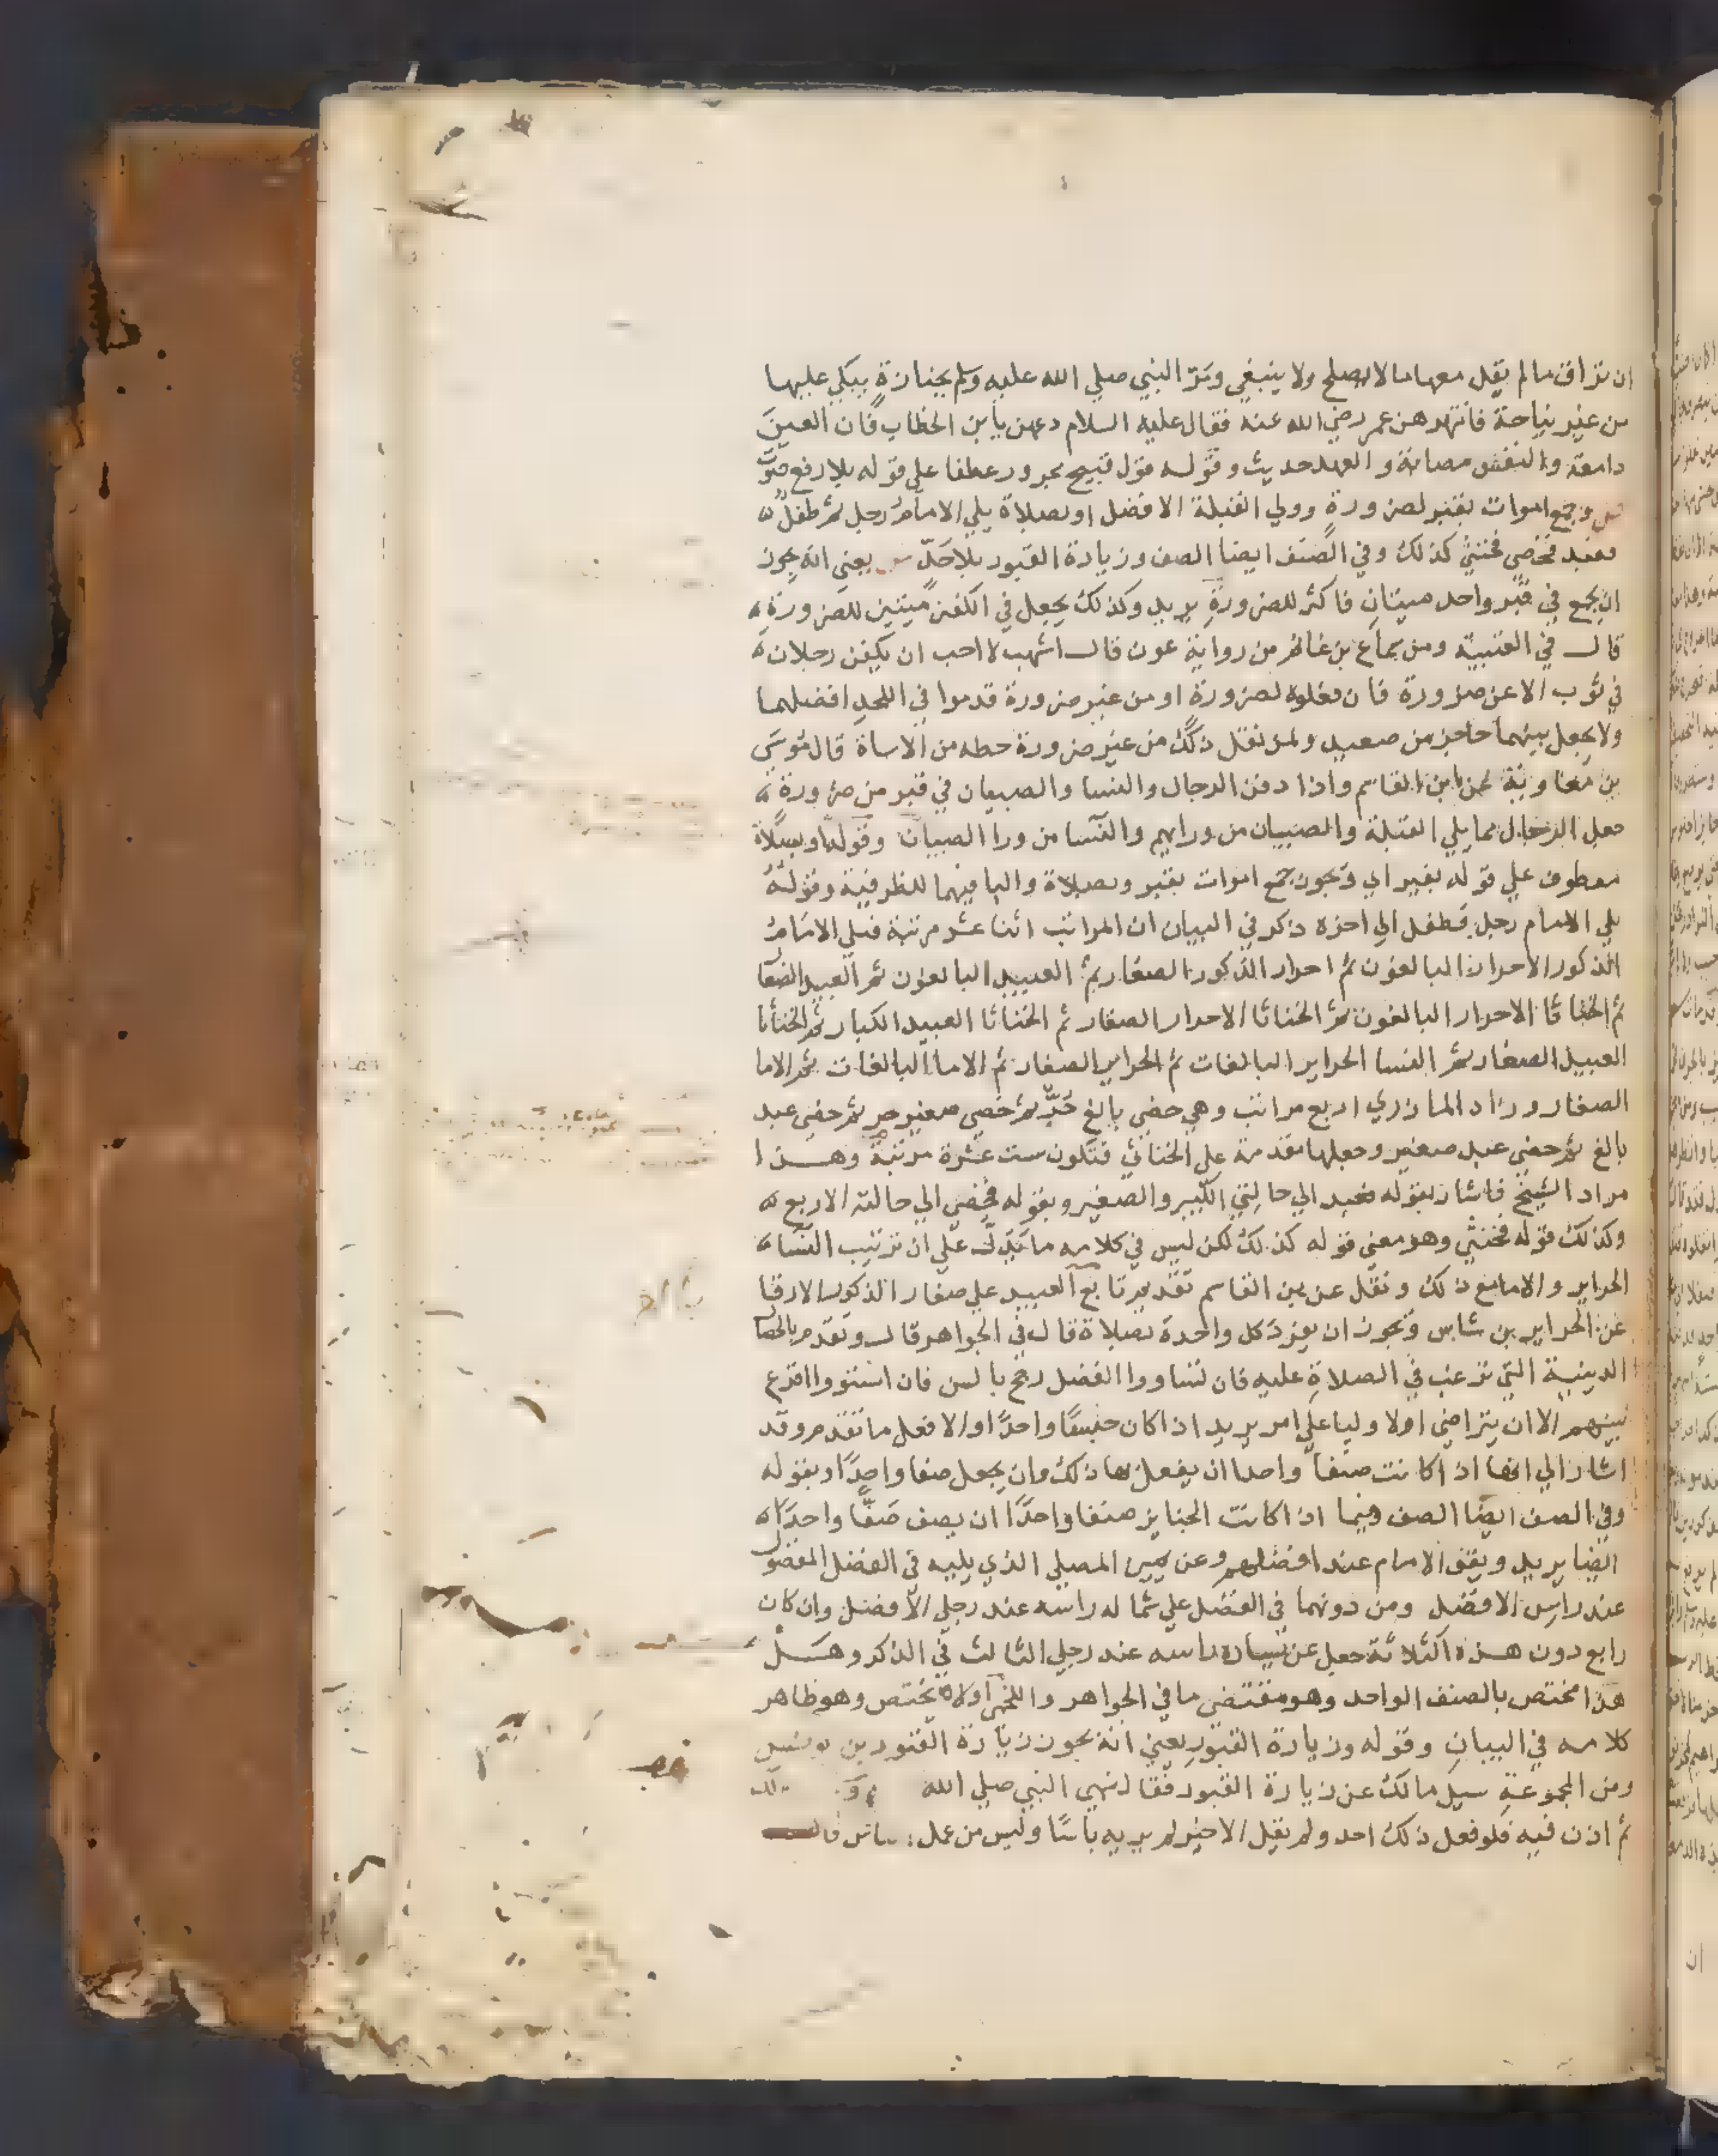 ان تراق ما لم يقل معها ما لا يصلح ولا ينبغي ومر النبي صلي الله عليه وسلم بجنازة يبكي عليها
من غير نياحة فانتهرهن عمر رضي الله عنه فقال عليه السلام دعهن يا بن الخطاب فان العين
دامعة والنفس مصابة والعهد حديث وقوله قول قبيح مجرور عطفا علي قوله بلا رفع صوت
وجمع اموات بقبر لضرورة وولي القبلة الافضل او بصلاة يلي الامام رجل ثم طفل
فعبد فخصي فخنثي كذلك وفي الصنف ايضا الصف وزيارة القبور بلا حد يعني انه يجوز
ان يجمع في قبر واحد ميتان فاكثر للضرورة يريد وكذلك يجعل في الكفن ميتين للضرورة
قال في العتبية ومن سماع بن غانم من رواية عون قال اشهب لا احب ان يكفن رجلان
في ثوب الا عن ضرورة فان فعلوه لضرورة او من غير ضرورة قدموا في اللحد افضلهما
ولا يجعل بينهما حاجز من صعيد ولمن نقل ذلك من غير ضرورة حطه من الاساة قال موسي
بن معاوية عن ابن القاسم واذا دفن الرجال والنسا والصبيان في قبر من ضرورة
جعل الرجال مما يلي القبلة والصبيان من ورايهم والنسا من ورا الصبيان وقوله او بصلاة
معطوف علي قوله بقبر اي ويجوز جمع اموات بقبر وبصلاة والبا فيهما للظرفية وقوله
يلي الامام رجل فطفل الي اخره ذكر في البيان ان المراتب اثنا عشر مرتبة فيلي الامام
الذكور الاحرار البالغون ثم احرار الذكور الصغار ثم العبيد البالغون ثم العبيد الصغا
ثم الخناثا الاحرار البالغون ثم الخناثا الاحرار الصغار ثم الخناثا العبيد الكبار ثم الخناثا
العبيد الصغار ثم النسا الحراير البالغات ثم الحراير الصغار ثم الاما البالغات ثم الاما
الصغار وزاد المازري اربع مراتب وهي خصي بالغ حر ثم خصي صغير حر ثم خصي عبد
بالغ ثم خصي عبد صغير وجعلها مقدمة علي الخناثي فتكون ست عشرة مرتبة وهذا
مراد الشيخ فاشار بقوله فعبد الي حالتي الكبير والصغير وبقوله فخصي الي حالته الاربع
وكذلك قوله فخنثي وهو معني قوله كذلك لكن ليس في كلامه ما يدل علي ان ترتيب النساء
الحراير والاما مع ذلك ونقل عن بن القاسم تقديم تابع العبيد علي صغار الذكور الارقا
عن الحراير بن شاس ويجوز ان يفرد كل واحدة بصلاة قال في الجواهر قال وتقدم بالخصا
الدينية التي ترغب في الصلاة عليه فان تساووا الفضل رجح بالسن فان استووا اقرع
بينهم الا ان يتراضي الاوليا علي امر يريد اذا كان جنسا واحدا والا فعل ما تقدم وقد
اشار الي انها اذا كانت صنفا واحدا ان يفعل بها ذلك وان يجعل صفا واحدا وبقوله
وفي الصنف ايضا الصف وفيما اذا كانت الجنايز صنفا واحدا ان يصف صفا واحدا
ايضا يريد ويقف الامام عند افضلهم وعن يمين المصلي الذي يليه في الفضل المفضول
عند راس الافضل ومن دونهما في الفضل علي شماله راسه عند رجلي الافضل وان كان
رابع دون هذه الثلاثة جعل عن يساره راسه عند رجلي الثالث في الذكر وهل
هذا مختص بالصنف الواحد وهو مقتضي ما في الجواهر واللخمي او لا يختص وهو ظاهر
كلامه في البيان وقوله وزيارة القبور يعني انه يجوز زيارة القبور بن يونس
ومن المجموعة سيل مالك عن زيارة القبور فقال نهي النبي صلي الله
ثم اذن فيه فلو فعل ذلك احد ولم يقل الا خيرا لم ير به باسا وليس من عمل